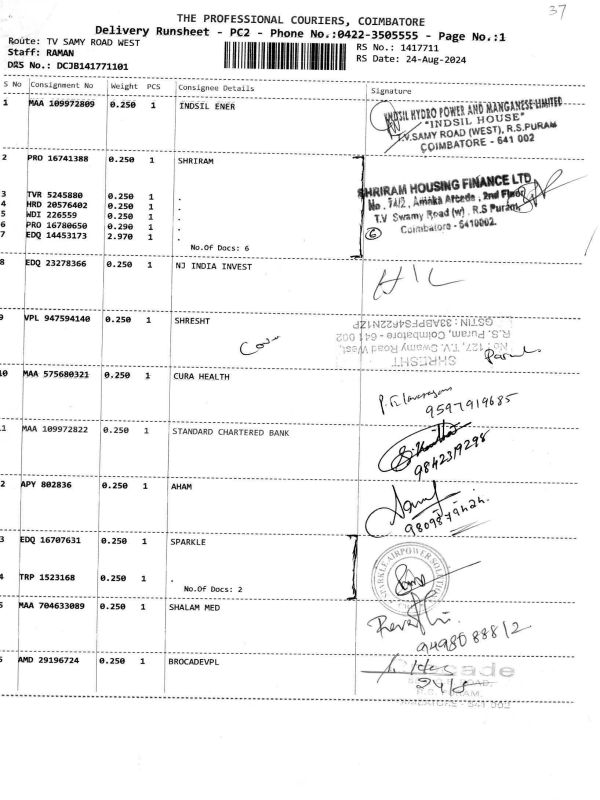 37
THE PROFESSIONAL COURIERS, COIMBATORE
Delivery Runsheet - PC2 - Phone No.:0422-3505555 - Page No.:1
Route: TV SAMY ROAD WEST
Staff: RAMAN
DRS No.: DCJB141771101
RS No.: 1417711
RS Date: 24-Aug-2024
S No Consignment No Weight PCS Consignee Details Signature
1 MAA 109972809 0.250 1 INDSIL ENER
INDSIL HYDRO POWER AND MANGANESE LIMITED
"INDSIL HOUSE"
T.V.SAMY ROAD (WEST), R.S.PURAM
COIMBATORE - 641 002
2 PRO 16741388 0.250 1 SHRIRAM
3 TVR 5245880 0.250 1 .
4 HRD 20576402 0.250 1 .
5 WDI 226559 0.250 1 .
6 PRO 16780650 0.290 1 .
7 EDQ 14453173 2.970 1 .
No.Of Docs: 6
SHRIRAM HOUSING FINANCE LTD
No. 74/2, Amaka Arcade, 2nd Floor
T.V Swamy Road (w), R.S Puram,
Coimbatore - 641002.
6
8 EDQ 23278366 0.250 1 NJ INDIA INVEST
9 VPL 947594140 0.250 1 SHRESHT
SHRESHT
No: 127, T.V. Swamy Road West,
R.S. Puram, Coimbatore - 641 002
10 MAA 575680321 0.250 1 CURA HEALTH
9597919685
1 MAA 109972822 0.250 1 STANDARD CHARTERED BANK
9842319298
2 APY 802836 0.250 1 AHAM
3 EDQ 16707631 0.250 1 SPARKLE
SPARKLE AIRPOWER
4 TRP 1523168 0.250 1 .
No.Of Docs: 2
5 MAA 704633089 0.250 1 SHALAM MED
Revathi
9498088812
5 AMD 29196724 0.250 1 BROCADEVPL
24/8